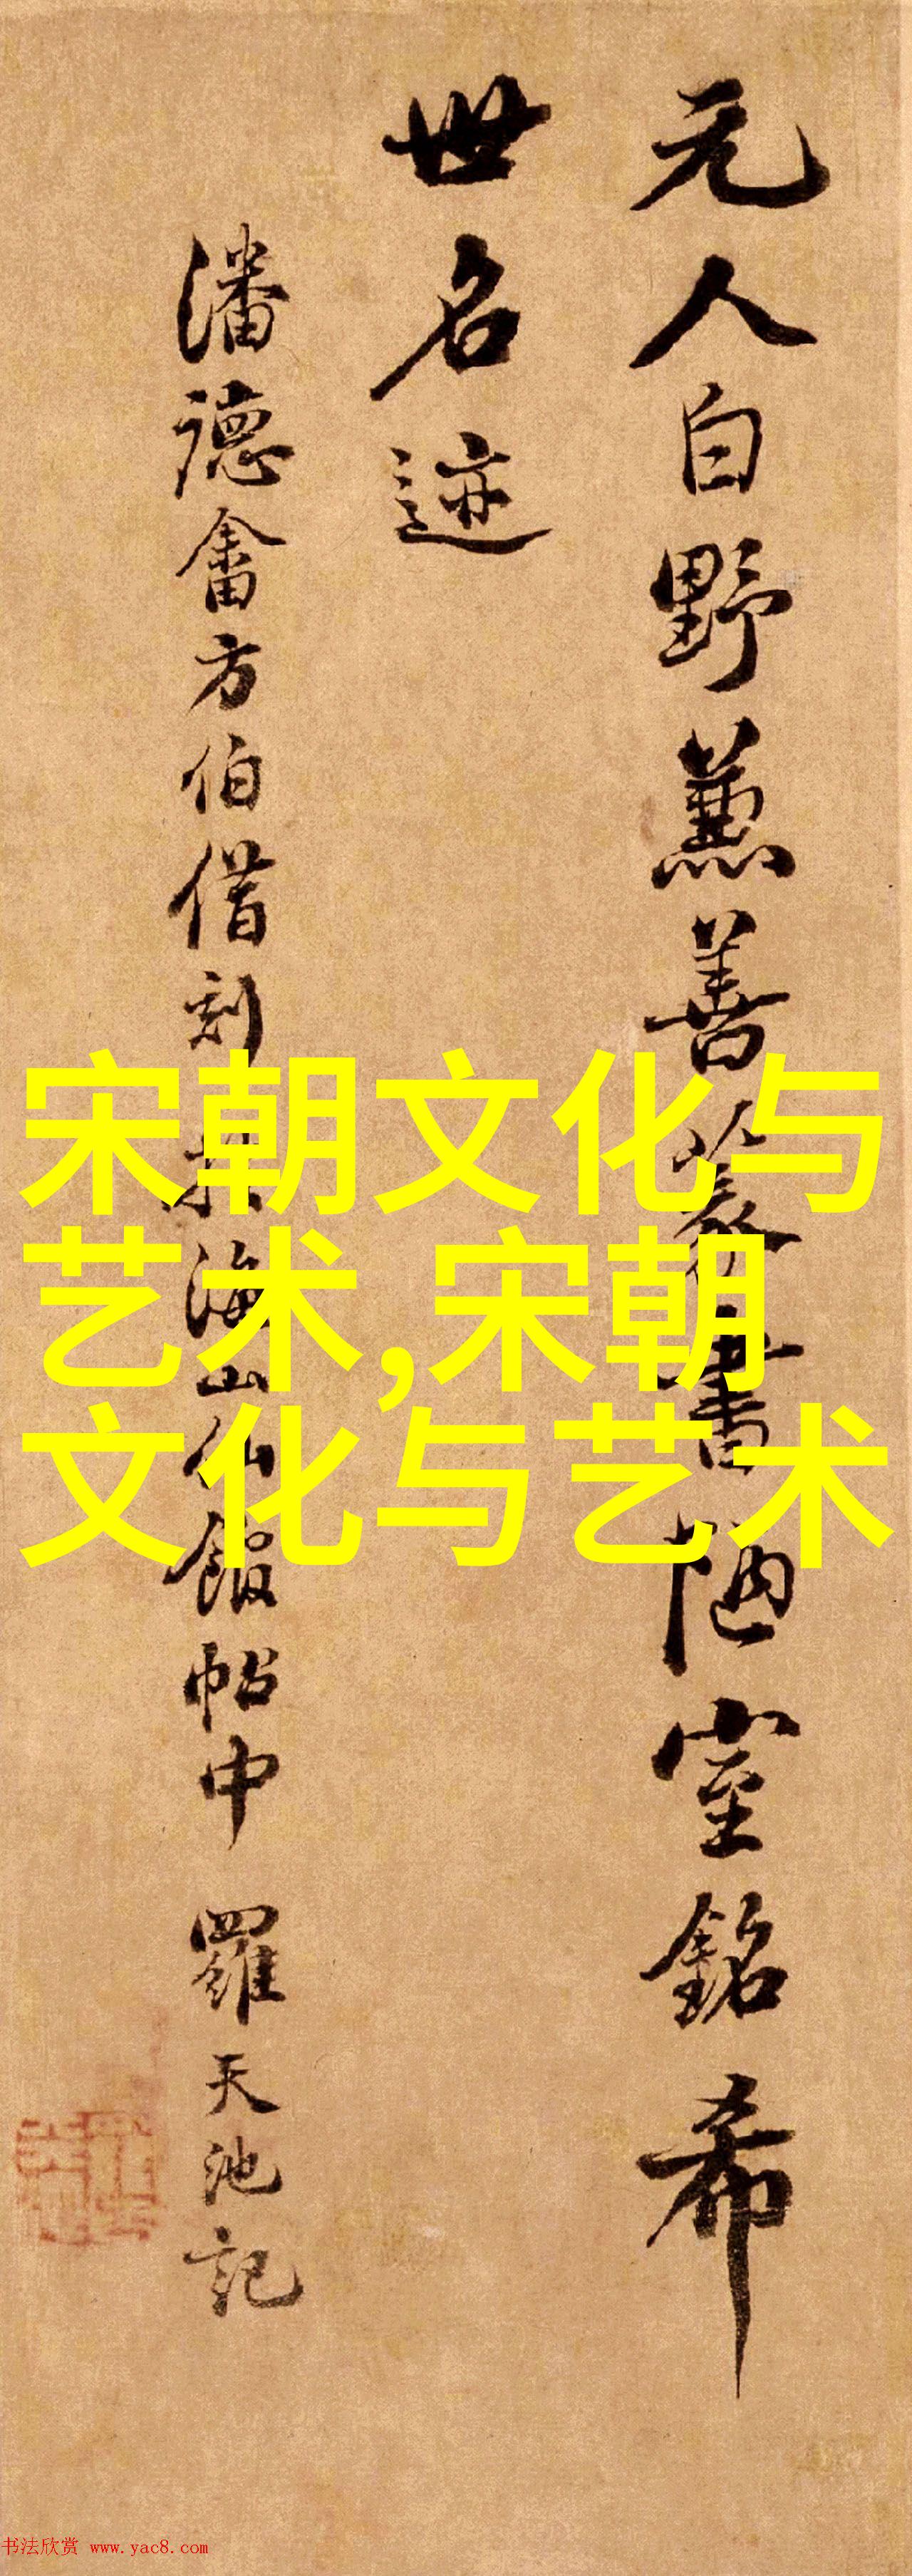 元人白野兼善篆書陋室銘希
世名迹
潘德畬方伯借刻於海山仙館帖中 羅天池記
宋朝文化与
艺术,宋朝
文化与艺术
书法欣赏 www.yac8.com